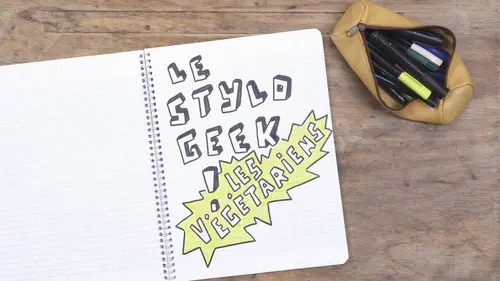 LE
STYLO
GEEK
! LES
VÉGÉTARIENS